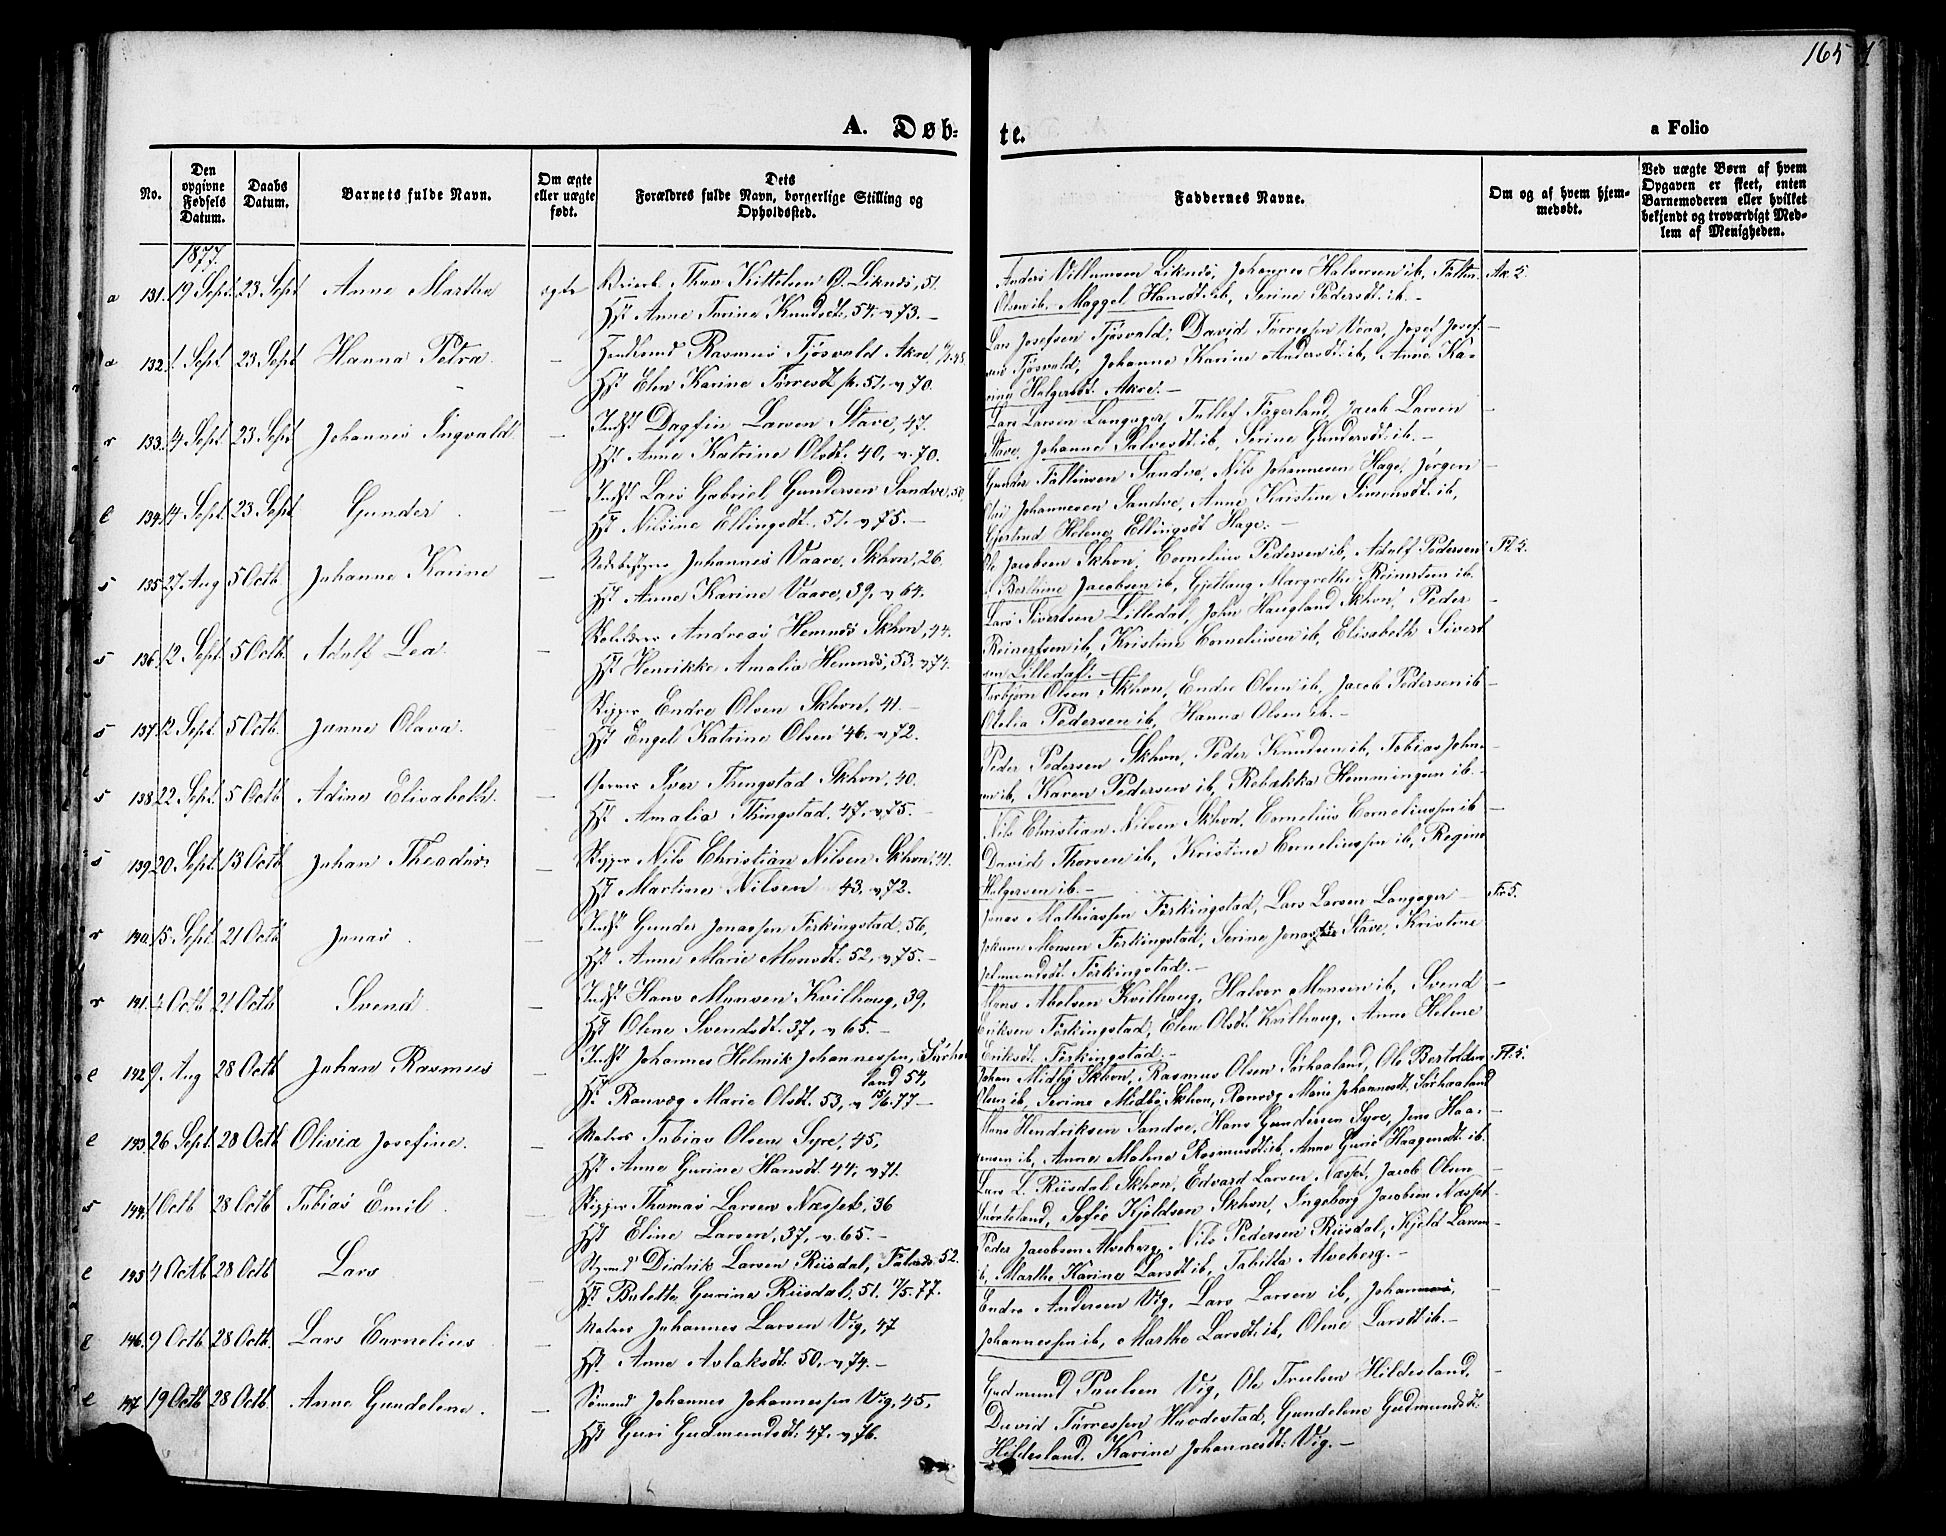 165
A. Døb-
te.
a Folio
No.
Den opgivne Fødsels Datum.
Daabs Datum.
Barnets fulde Navn.
Om ægte eller uægte født.
Dets Forældres fulde Navn, borgerlige Stilling og Opholdssted.
Faddernes Navne.
Om og af hvem hjem-
medøbt.
Ved uægte Børn af hvem
Opgaven er skeet, enten
Barnemoderen eller hvilket
bekjendt og troværdigt Med-
lem af Menigheden.
1877.
a 131. 19 Sept. 23 Sept Anne Martha ægte Thor Kittelsen Ø. Liknes, 51.
Hst Anne Serine Knudsdt., 54, v 73. —
Anders Villumsen Liknes, Johannes Halvorsen ib,
Olsen ib. Maggel Hansdt. ib, Serine Pedersdt. ib. —
a 132. 1 Sept. 23 Sept Hanna Petra — Rasmus Tjøsvald Akre,
Hst Elen Karine Tørresdt 51. v 70.
Lars Josefsen Tjøsvold, David Tørressen Veaa, Josef Josef-
sen Tjøsvold, Johanne Karine Andersdt. ib, Anne Ka-
rine Holgersdt. Akre. —
r 133. 4 Sept 23 Sept Johannes Ingvald — Indst Dagfin Larsen Stave, 47.
Hst Anne Katrine Olsdt. 40, v. 70.
Lars Larsen Langager, Tollef Fagerland, Jacob Larsen
Stave, Johanne Salvesdt. ib, Serine Gundersdt. ib. —
e 134. 14 Sept. 23 Sept Gunder — Indst Lars Gabriel Gundersen Sandve, 50,
Hst Nilsine Ellingsdt., 51. v 75. —
Gunder Tollevsen Sandve, Nils Johannesen Hage, Jørgen
Johannesen Sandve, Anne Kristine Simonsdt. ib,
Gjertrud Helene Ellingsdt Hage. —
s 135 27 Aug 5 Octb. Johanne Karine — Johannes Vaare, Skhvn, 26.
Hst Anne Karine Vaare, 39, v 64.
Ole Jacobsen Skhvn, Cornelius Pedersen ib, Adolf Pedersen
Berthine Jacobsen ib, Gjetlaug Margrethe Reinertsen ib.
s 136. 12 Sept. 5 Octb. Adolf Lea — Andreas Hemnes Skhvn, 44.
Hst Henrikke Amalia Hemnes, 53. v 74.
Lars Sivertsen Lilledal, John Haugland Skhvn, Peder
Reinertsen ib, Kristine Corneliusen ib, Elisabeth Sivert-
sen Lilledal. —
s 137. 12 Sept. 5 Octb. Janna Olava. — Skipper Endre Olsen Skhvn, 41.
Hst Engel Katrine Olsen 46. v 72.
Torbjørn Olsen Skhvn, Endre Olsen ib, Jacob Pedersen ib
Otelia Pedersen ib, Hanna Olsen ib. —
s 138. 22 Sept. 5 Octb Adine Elisabeth. — Iver Thingstad Skhvn, 40.
Hst Amalia Thingstad, 47, v 75. —
Peder Pedersen Skhvn, Peder Knudsen ib, Tobias John-
sen ib, Karen Pedersen ib, Rebakka Hemmingsen ib. —
s 139. 20 Sept. 13 Octb Johan Theodor — Skipper Nils Christian Nilsen Skhvn, 41.
Hst Martine Nilsen 43, v 72.
Nils Christian Nilsen Skhvn, Cornelius Corneliussen ib
David Thorsen ib, Kristine Corneliussen ib, Regine
Holgersen ib. —
r 140. 15 Sept. 21 Octb Jonas — Indst Gunder Jonassen Ferkingstad, 56,
Hst Anne Marie Monsdt. 52, v 75. —
Jonas Mathiassen Ferkingstad, Lars Larsen Langager
Monsen Ferkingstad, Serine Jonasdt. Stave, Kristine
Ferkingstad. —
r 141. 4 Octb 21 Octb Svend — Indst Hans Monsen Kvilhaug, 39,
Hst Olene Svendsdt. 37, v 65. —
Mons Abelsen Kvilhaug, Halvor Monsen ib, Svend
Eriksen Ferkingstad, Elen Olsdt. Kvilhaug, Anne Helene
Eriksdt. Ferkingstad. —
e 142 9 Aug 28 Octb Johan Rasmus — Indst Johannes Helmik Johannessen, Sørhaa-
land 54,
Hst. Ranvæg Marie Olsdt. 53, v 15/6. 77 —
Johan Midbø Skhvn, Rasmus Olsen Sørhaaland, Ole Bertoldsen
Olsen ib, Serine Midbø, Skhvn, Ranvæg Marie Johannesdt. Sørhaaland
e 143 26 Sept. 28 Octb Olivia Josefine. — Matros Tobias Olsen Syre, 45,
Hst Anne Gurine Hansdt. 44, v 71.
Hans Hendriksen Sandve, Hans Gundersen Syre, Jens Haa-
gensen ib, Anne Malene Rasmusdt. ib, Anne Gurie Haagensdt. ib.
s 144. 1 Octb 28 Octb. Tobias Emil — Skipper Thomas Larsen Næsset, 36
Hst Eline Larsen, 37, v. 65. —
Lars L. Riisdal Skhvn, Edvard Larsen Næsset, Jacob Olsen
Snørteland, Sofie Kjeldsen Skhvn, Ingeborg Jacobsen Næsset
e 145 4 Octb 28 Octb Lars — Didrik Larsen Riisdal, Falnes 52.
Hst Bolette Gurine Riisdal, 51. 77.
Peder Jacobsen Alveberg, Nils Pedersen Riisdal, Kjeld Larsen
ib, Marthe Karine Larsdt ib, Tabitta Alveberg. —
e 146. 9 Octb 28 Octb. Lars Cornelius — Matros Johannes Larsen Vig, 47
Hst. Anne Aslaksdt. 50, v 74. —
Endre Andersen Vig, Lars Larsen ib, Johannes
Johannessen ib, Marthe Larsdt. ib, Olene Larsdt ib. —
e 147 19 Octb 28 Octb. Anne Gundelene. — Sømand Johannes Johannessen Vig, 45,
Hst Guri Gudmundsdt. 47. v 76.
Gudmund Paulsen Vig, Ole Truelsen Hildesland,
David Tørressen Hovdestad, Gundelene Gudmundsdt.
Hildesland, Karine Johannesdt. Vig. —